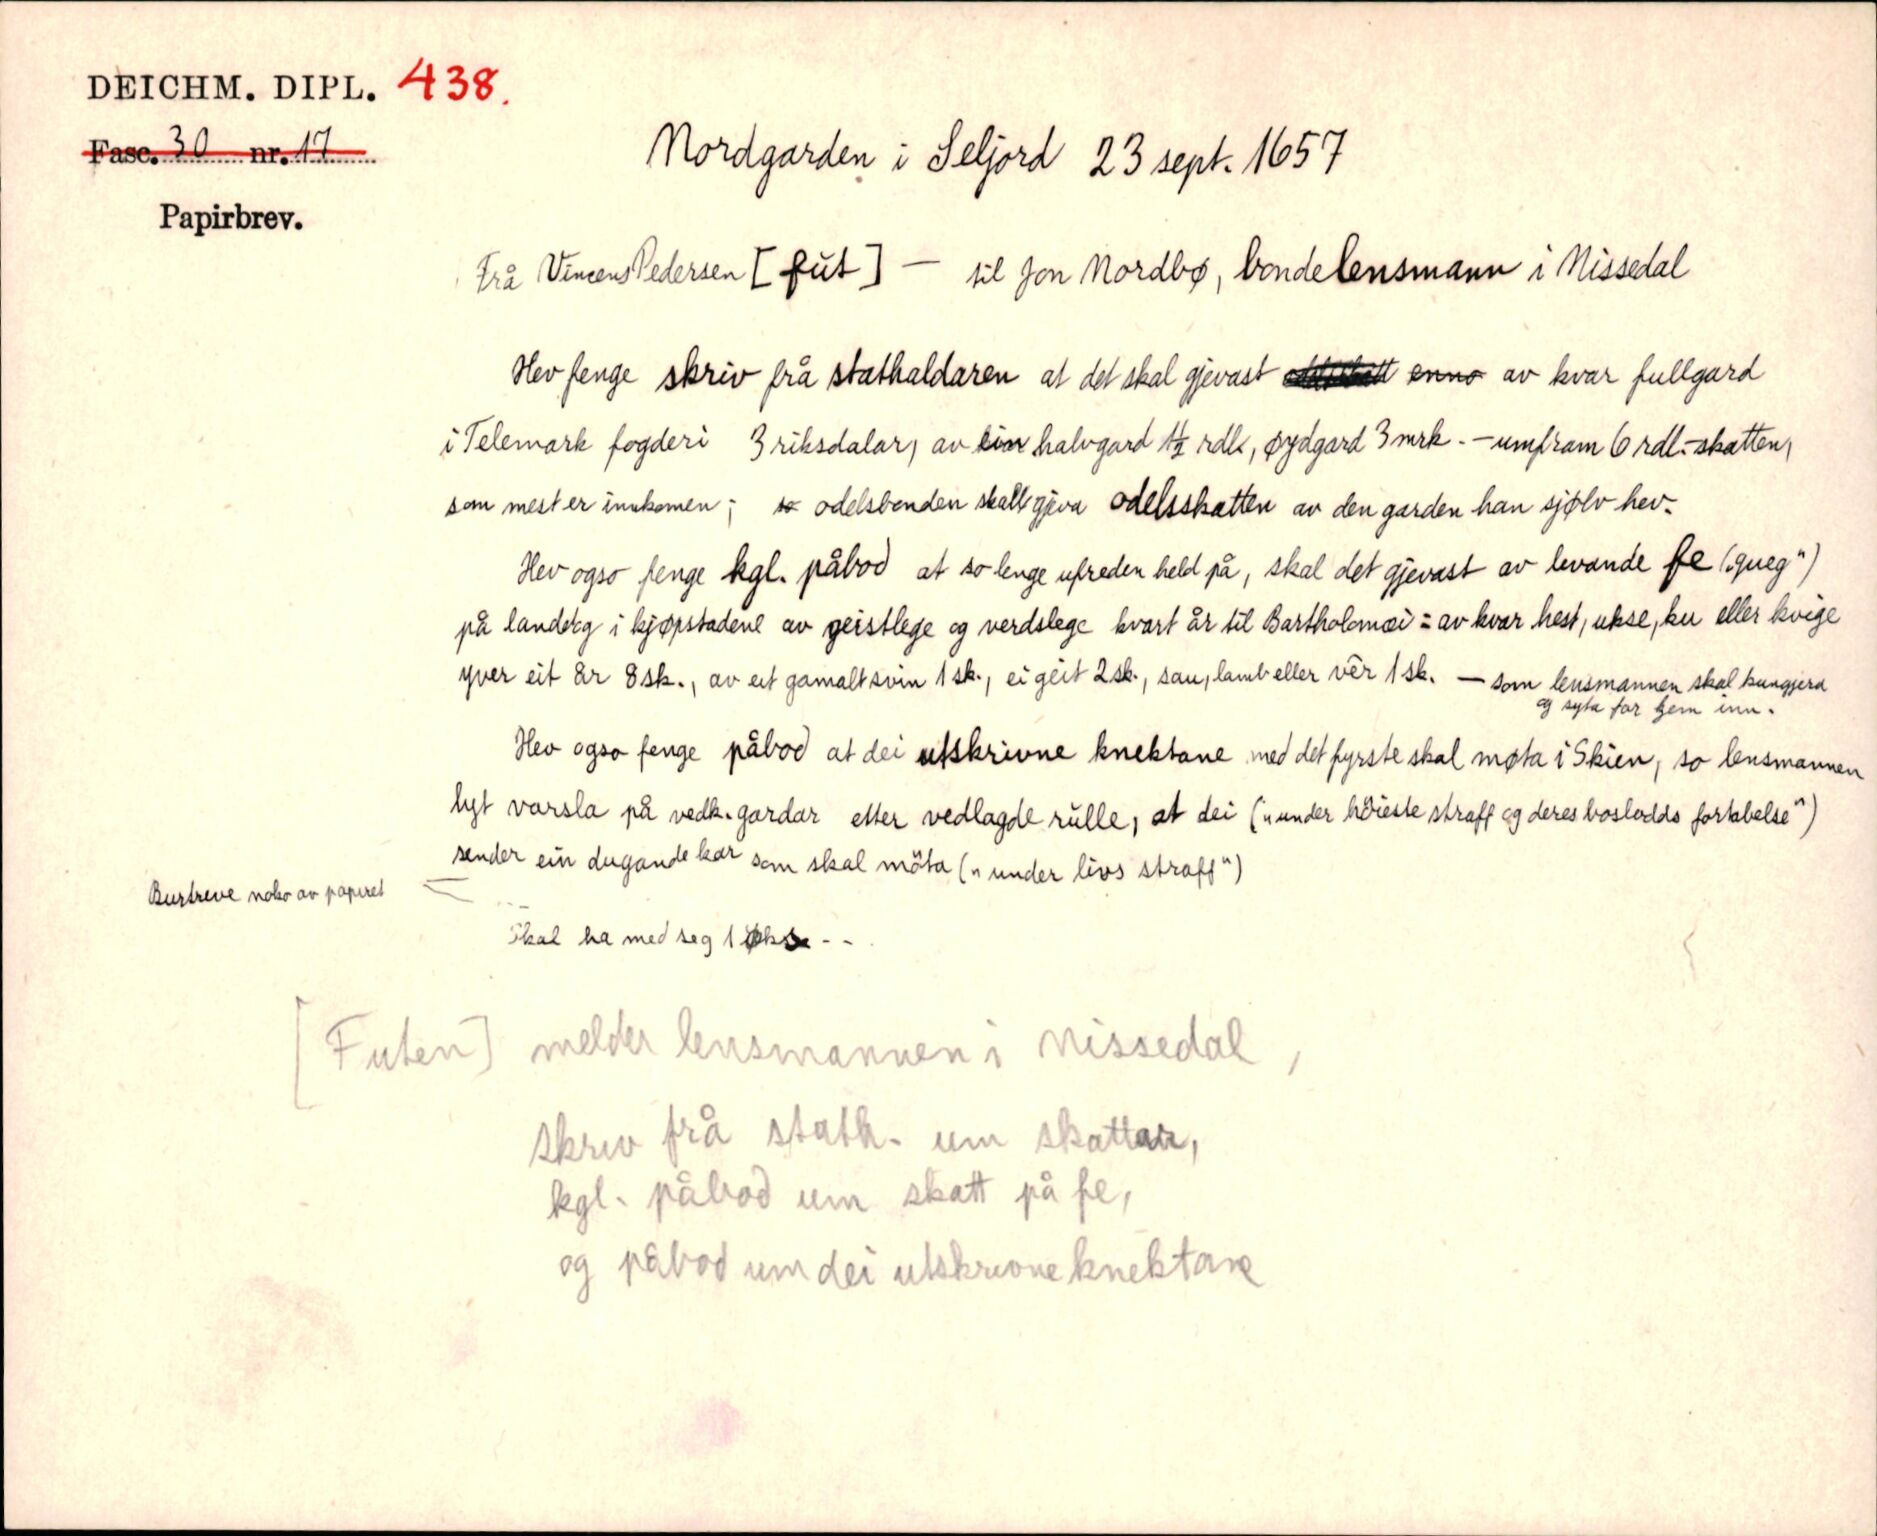 DEICHM. DIPL. 438.
Fasc. 30 nr. 17
Papirbrev.
Nordgarden i Seljord 23 sept. 1657
Frå Vincens Pedersen [fut] — til Jon Nordbø, bondelensmann i Nissedal
Hev fenge skriv frå stathaldaren at det skal gjevast enno av kvar fullgard
i Telemark fogderi 3 riksdalar, av halvgard 1½ rdl., øydgard 3 mrk. - umfram 6 rdl.-skatten,
som mest er innkomen; so odelsbonden skall gjeva odelsskatten av den garden han sjølv hev.
Hev ogso fenge kgl. påbod at so lenge ufreden held på, skal det gjevast av levande fe („queg")
på land og i kjøpstadene av geistlege og verdslege kvart år til Bartholomæi: av kvar hest, ukse, ku eller kvige
yver eit år 8 sk., av eit gamalt svin 1 sk., ei geit 2 sk., sau, lamb eller vêr 1 sk. — som lensmannen skal kungjera
og syta for kjem inn.
Hev ogso fenge påbod at dei utskrivne knektane med det fyrste skal møta i Skien, so lensmannen
lyt varsla på vedk. gardar etter vedlagde rulle, at dei („under höieste straff og deres boslodds fortabelse")
sender ein dugande kar som skal möta („under livs straff")
Burtreve noko av papiret
Skal ha med seg 1 økse - -
[Futen] melder lensmannen i Nissedal,
skriv frå stath. um skattar,
kgl. påbod um skatt på fe,
og påbod um dei utskrivne knektane